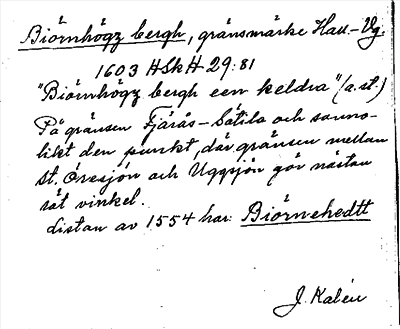 Biörnhögz bergh, gränsmärke Hall.-Vg.
1603 HSkH 29:81
"Biörnhögz bergh een keldra" (a.st.)
På gränsen Fjärås-Sätila och sanno-
likt den punkt, där gränsen mellan
St. Öresjön och Uggsjön gör nästan
rät vinkel.
Listan av 1554 har: Biörnehedtt
J. Kalén